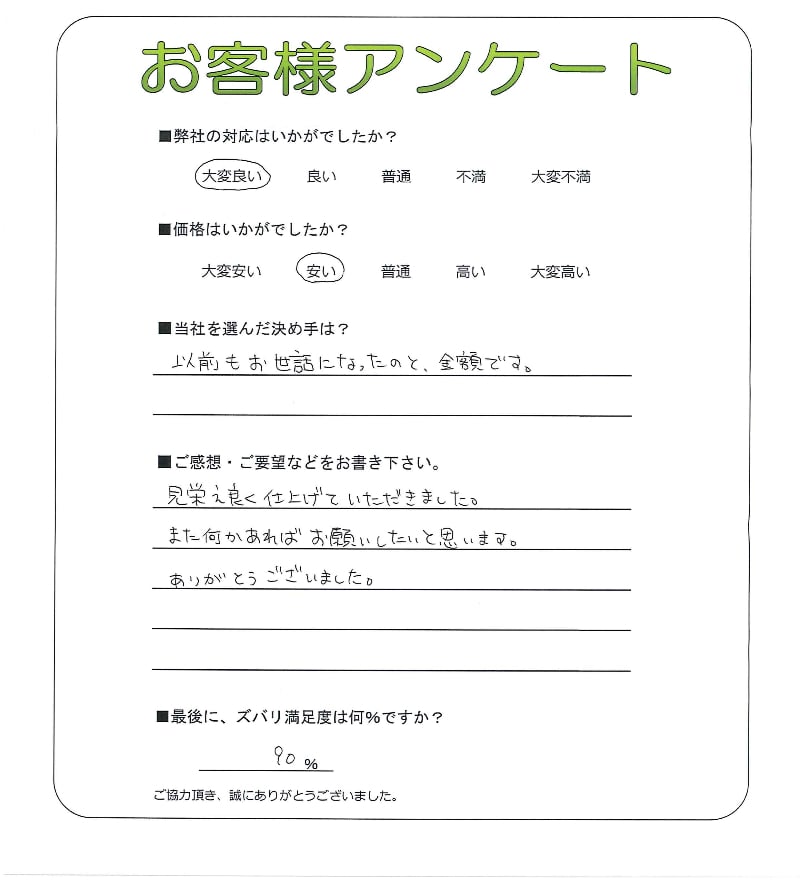 お客様アンケート
■弊社の対応はいかがでしたか？
大変良い 良い 普通 不満 大変不満
■価格はいかがでしたか？
大変安い 安い 普通 高い 大変高い
■当社を選んだ決め手は？
以前もお世話になったのと、金額です。
■ご感想・ご要望などをお書き下さい。
見栄え良く仕上げていただきました。
また何かあればお願いしたいと思います。
ありがとうございました。
■最後に、ズバリ満足度は何%ですか？
90 %
ご協力頂き、誠にありがとうございました。